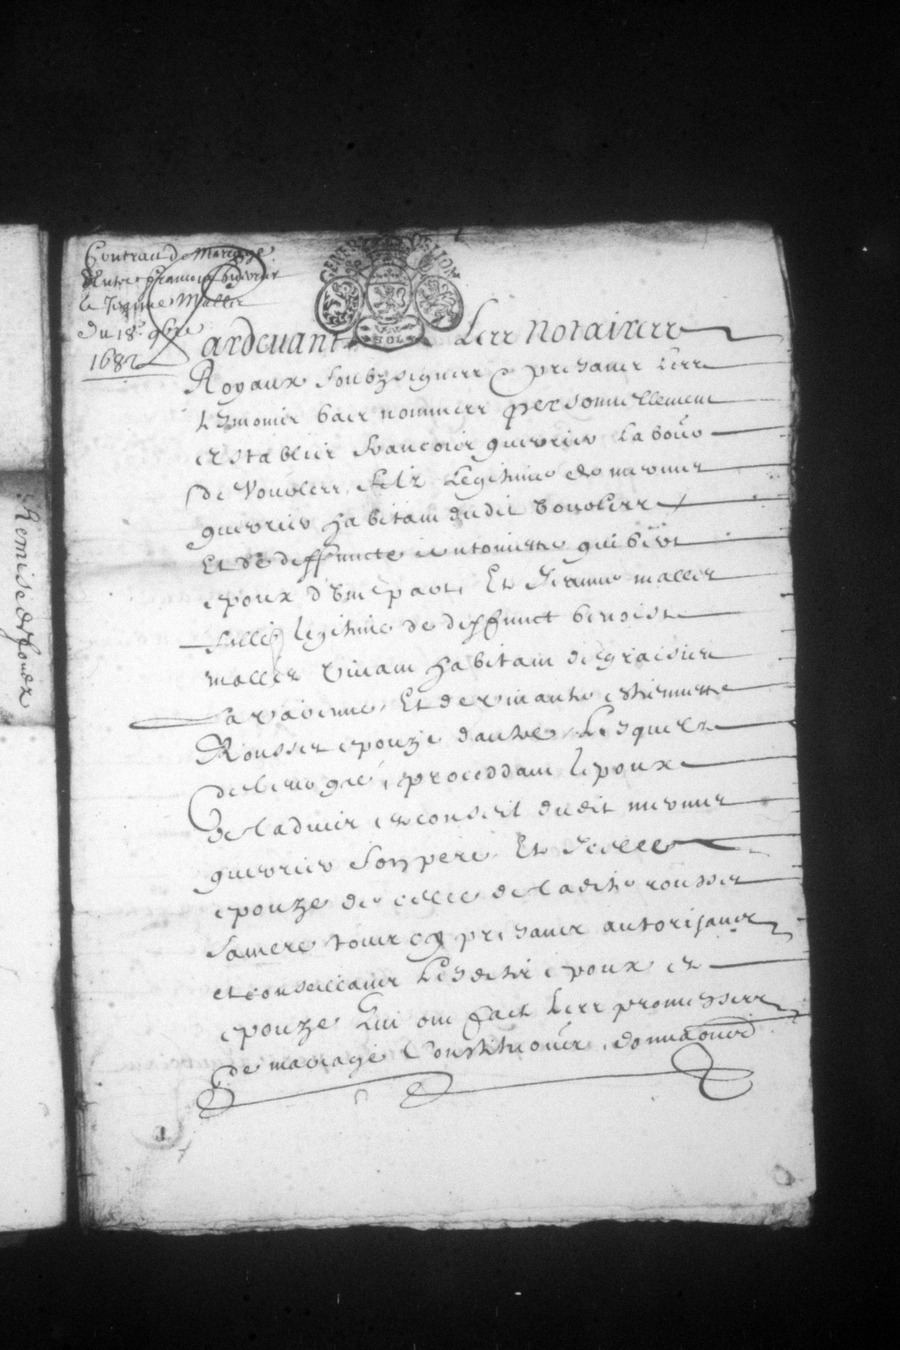 Contract de Mariage
Entre françois guevrier
et Jeanne Mallet
du 18e 9bre
1682
GENER LYON
SOL
Pardevant Lesr notairesr
Royaux Soubzsignesr & presancer Lesr
tesmoinsr bas nommesr personnellement
establisr françoisr guevrier Labour
de Vouolesr, filz Legitime de meonet
guevrier habitant dudit Vouolesr
Et de deffuncte antoinette
epoux d'Une part, Et Jeanne mallet
fillie legitime de deffunct benoist
mallet Vivant habitant de
la Et de Vivante estiennette
Rousset epouze dautre, Lesquelz
de leur gré, proceddant lepoux
de Ladvisr et conseil dudit meonet
guevrier Son pere, Et Icelle
epouze de celle de Ladite rousset
Samere tousr cy presancr autorisancr
et conseillancr Lesditz epoux et
epouze Lui ont faict Lesr promessesr
de mariage Constitutionsr, donnaonsr
Remise de fondz
1